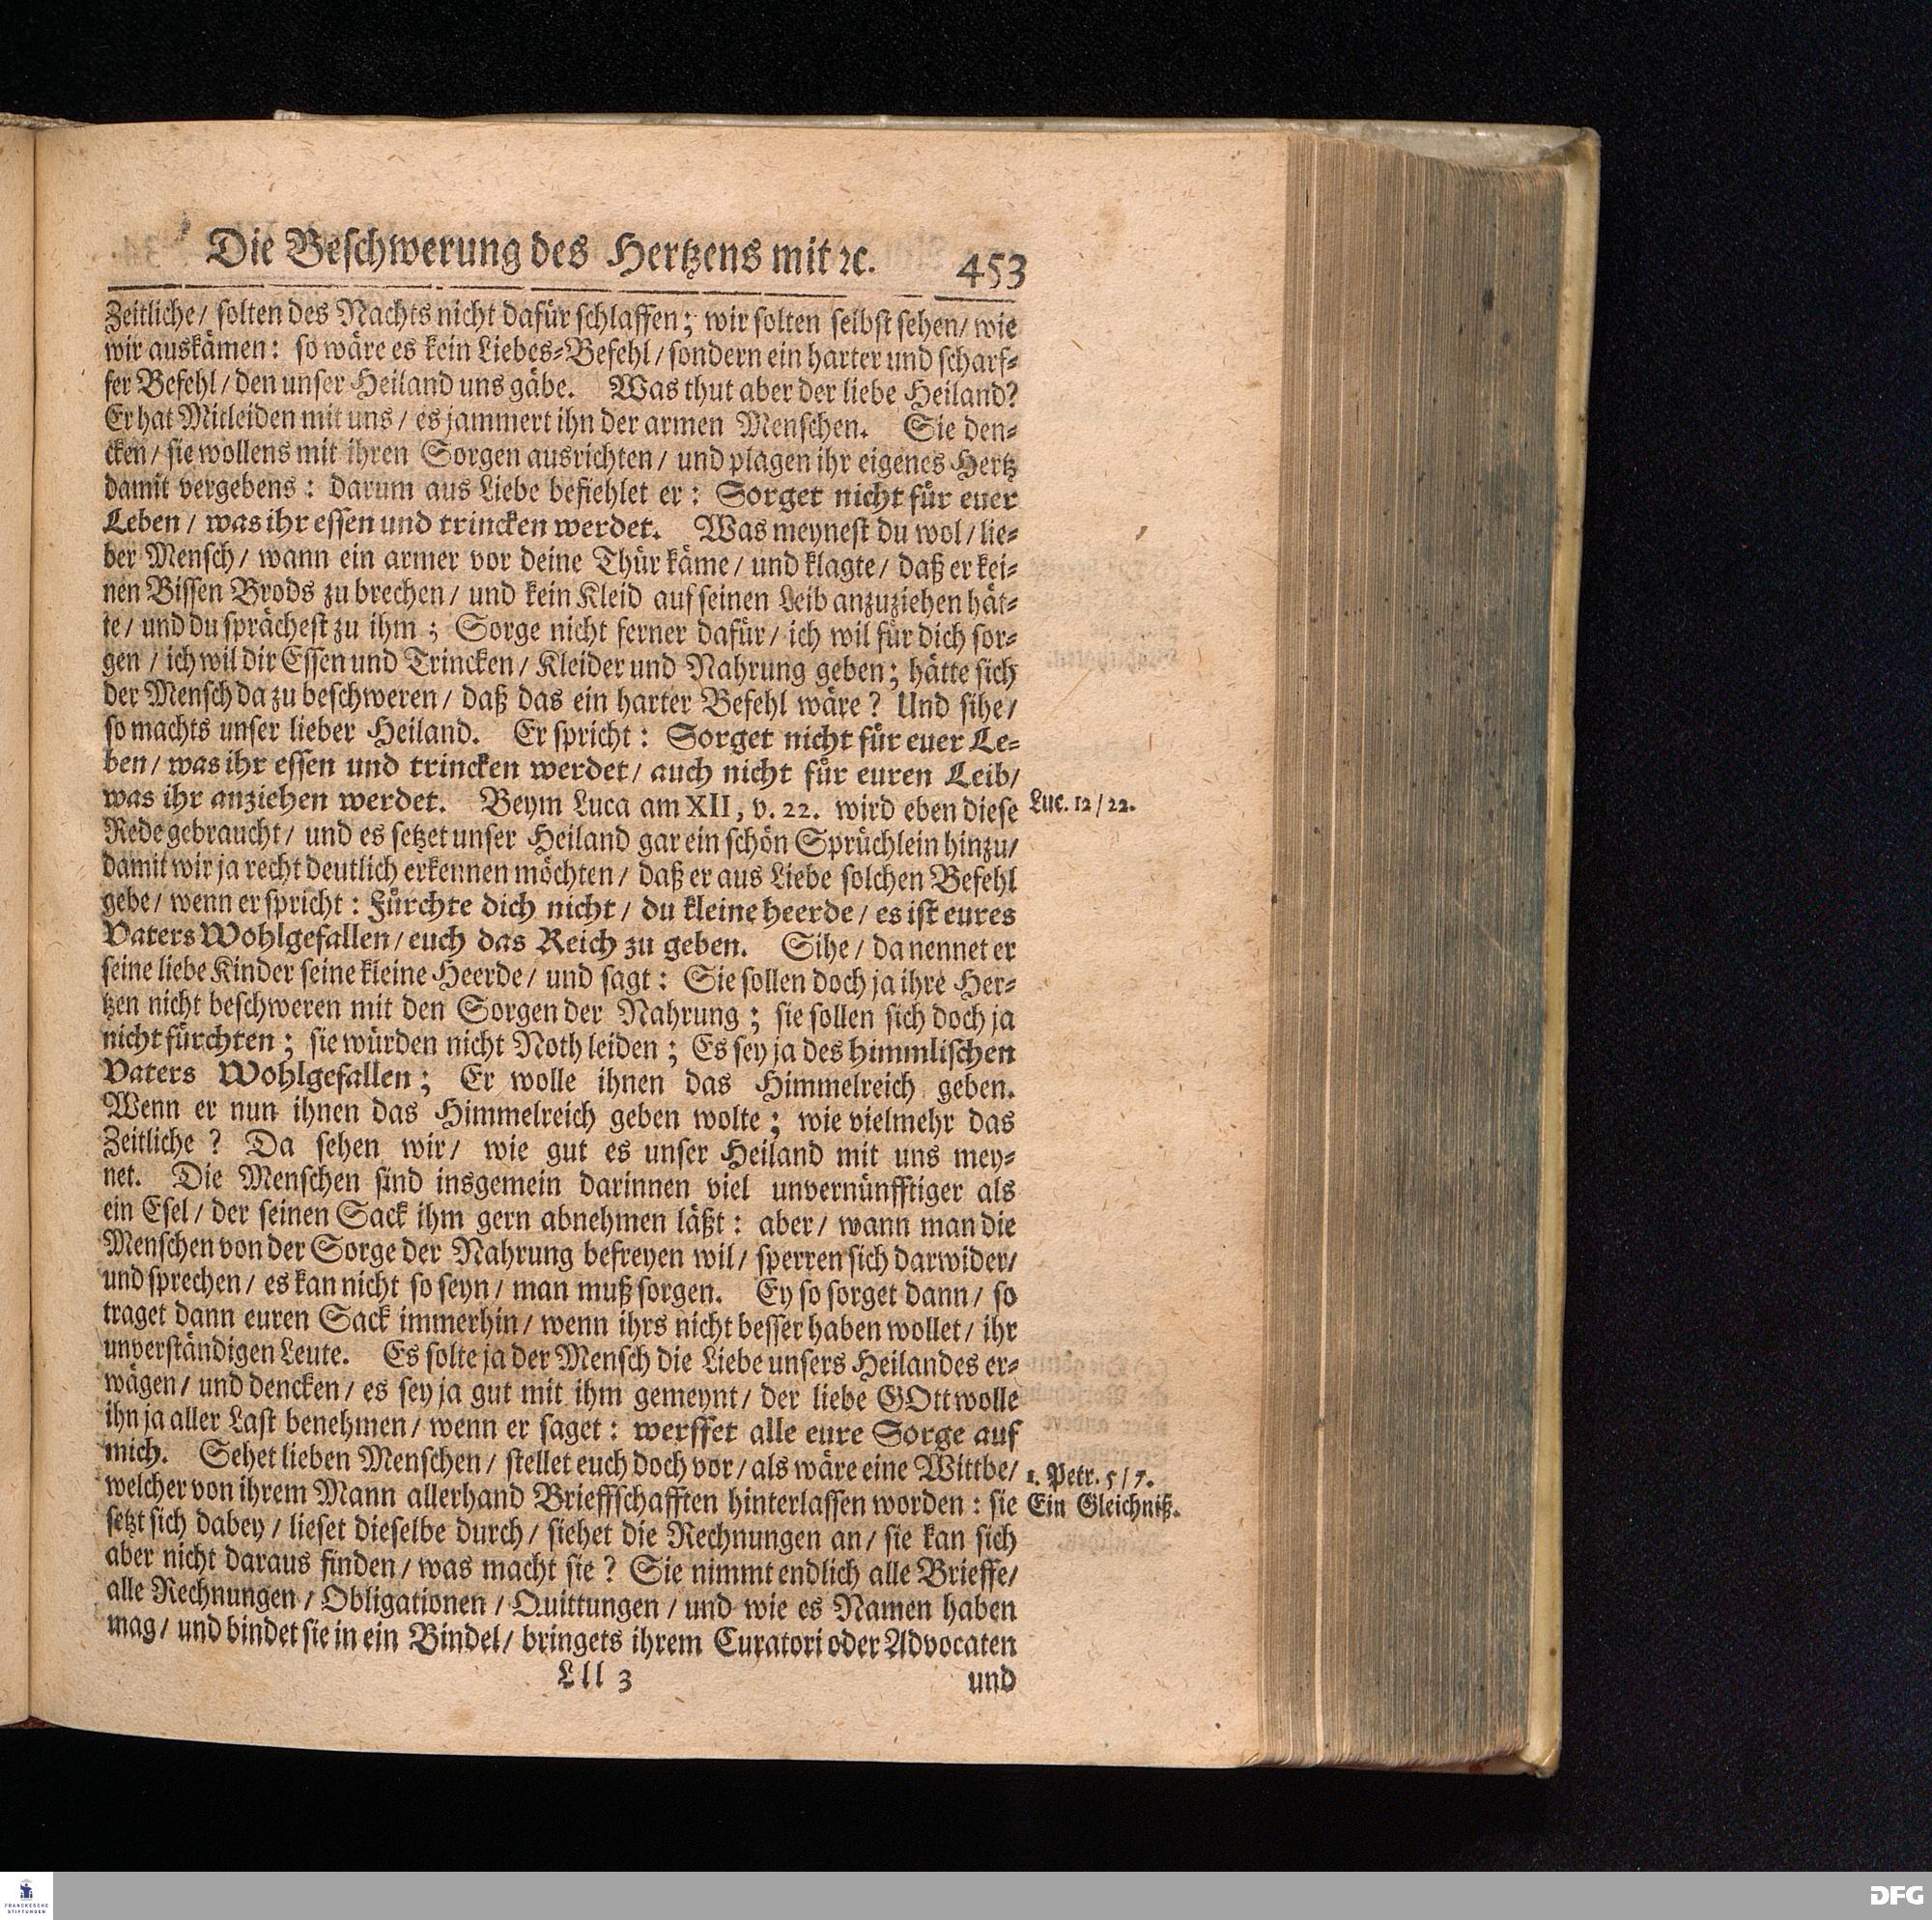 Die Beschwerung des Hertzens mit ꝛc. 453
Zeitliche / solten des Nachts nicht dafür schlaffen; wir solten selbst sehen / wie
wir auskämen: so wäre es kein Liebes-Befehl / sondern ein harter und scharf-
fer Befehl / den unser Heiland uns gäbe. Was thut aber der liebe Heiland?
Er hat Mitleiden mit uns / es jammert ihn der armen Menschen. Sie den-
cken / sie wollens mit ihren Sorgen ausrichten / und plagen ihr eigenes Hertz
damit vergebens: darum aus Liebe befiehlet er: Sorget nicht für euer
Leben / was ihr essen und trincken werdet. Was meynest du wol / lie-
ber Mensch / wann ein armer vor deine Thür käme / und klagte / daß er kei-
nen Bissen Brods zu brechen / und kein Kleid auf seinen Leib anzuziehen hät-
te / und du sprächest zu ihm; Sorge nicht ferner dafür / ich wil für dich sor-
gen / ich wil dir Essen und Trincken / Kleider und Nahrung geben; hätte sich
der Mensch da zu beschweren / daß das ein harter Befehl wäre? Und sihe /
so machts unser lieber Heiland. Er spricht: Sorget nicht für euer Le-
ben / was ihr essen und trincken werdet / auch nicht für euren Leib /
was ihr anziehen werdet. Beym Luca am XII, v. 22. wird eben diese
Luc. 12 / 22.
Rede gebraucht / und es setzet unser Heiland gar ein schön Sprüchlein hinzu /
damit wir ja recht deutlich erkennen möchten / daß er aus Liebe solchen Befehl
gebe / wenn er spricht: Fürchte dich nicht / du kleine heerde / es ist eures
Vaters Wohlgefallen / euch das Reich zu geben. Sihe / da nennet er
seine liebe Kinder seine kleine Heerde / und sagt: Sie sollen doch ja ihre Her-
tzen nicht beschweren mit den Sorgen der Nahrung; sie sollen sich doch ja
nicht fürchten; sie würden nicht Noth leiden; Es sey ja des himmlischen
Vaters Wohlgefallen; Er wolle ihnen das Himmelreich geben.
Wenn er nun ihnen das Himmelreich geben wolte; wie vielmehr das
Zeitliche? Da sehen wir / wie gut es unser Heiland mit uns mey-
net. Die Menschen sind insgemein darinnen viel unvernünfftiger als
ein Esel / der seinen Sack ihm gern abnehmen läßt: aber / wann man die
Menschen von der Sorge der Nahrung befreyen wil / sperren sich darwider /
und sprechen / es kan nicht so seyn / man muß sorgen. Ey so sorget dann / so
traget dann euren Sack immerhin / wenn ihrs nicht besser haben wollet / ihr
unverständigen Leute. Es solte ja der Mensch die Liebe unsers Heilandes er-
wägen / und dencken / es sey ja gut mit ihm gemeynt / der liebe GOtt wolle
ihn ja aller Last benehmen / wenn er saget: werffet alle eure Sorge auf
mich. Sehet lieben Menschen / stellet euch doch vor / als wäre eine Wittbe /
1. Petr. 5 / 7.
welcher von ihrem Mann allerhand Brieffschafften hinterlassen worden: sie
Ein Gleichniß.
setzt sich dabey / lieset dieselbe durch / siehet die Rechnungen an / sie kan sich
aber nicht daraus finden / was macht sie? Sie nimmt endlich alle Brieffe /
alle Rechnungen / Obligationen / Quittungen / und wie es Namen haben
mag / und bindet sie in ein Bindel / bringets ihrem Curatori oder Advocaten
Lll 3 und
FRANCKESCHE
STIFTUNGEN
DFG